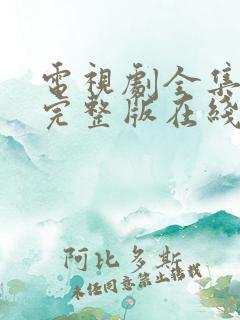 電視劇全集
完整版在綫
阿比多斯
未经同意禁止转载